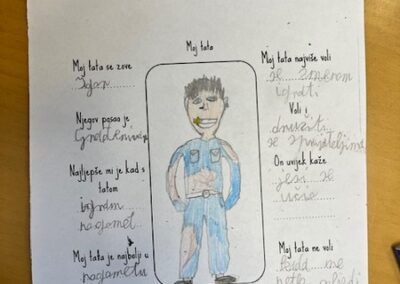 Moj tata
Moj tata se zove
Igor
Njegov posao je
Građevina
Najljepše mi je kad s
tatom
igram
nagomet
Moj tata je najbolji u
nagometu
Moj tata najviše voli
se samnom
igrati
Voli i
družiti
se s prijateljima
On uvijek kaže
jesi se
učio
Moj tata ne voli
kada me
netko